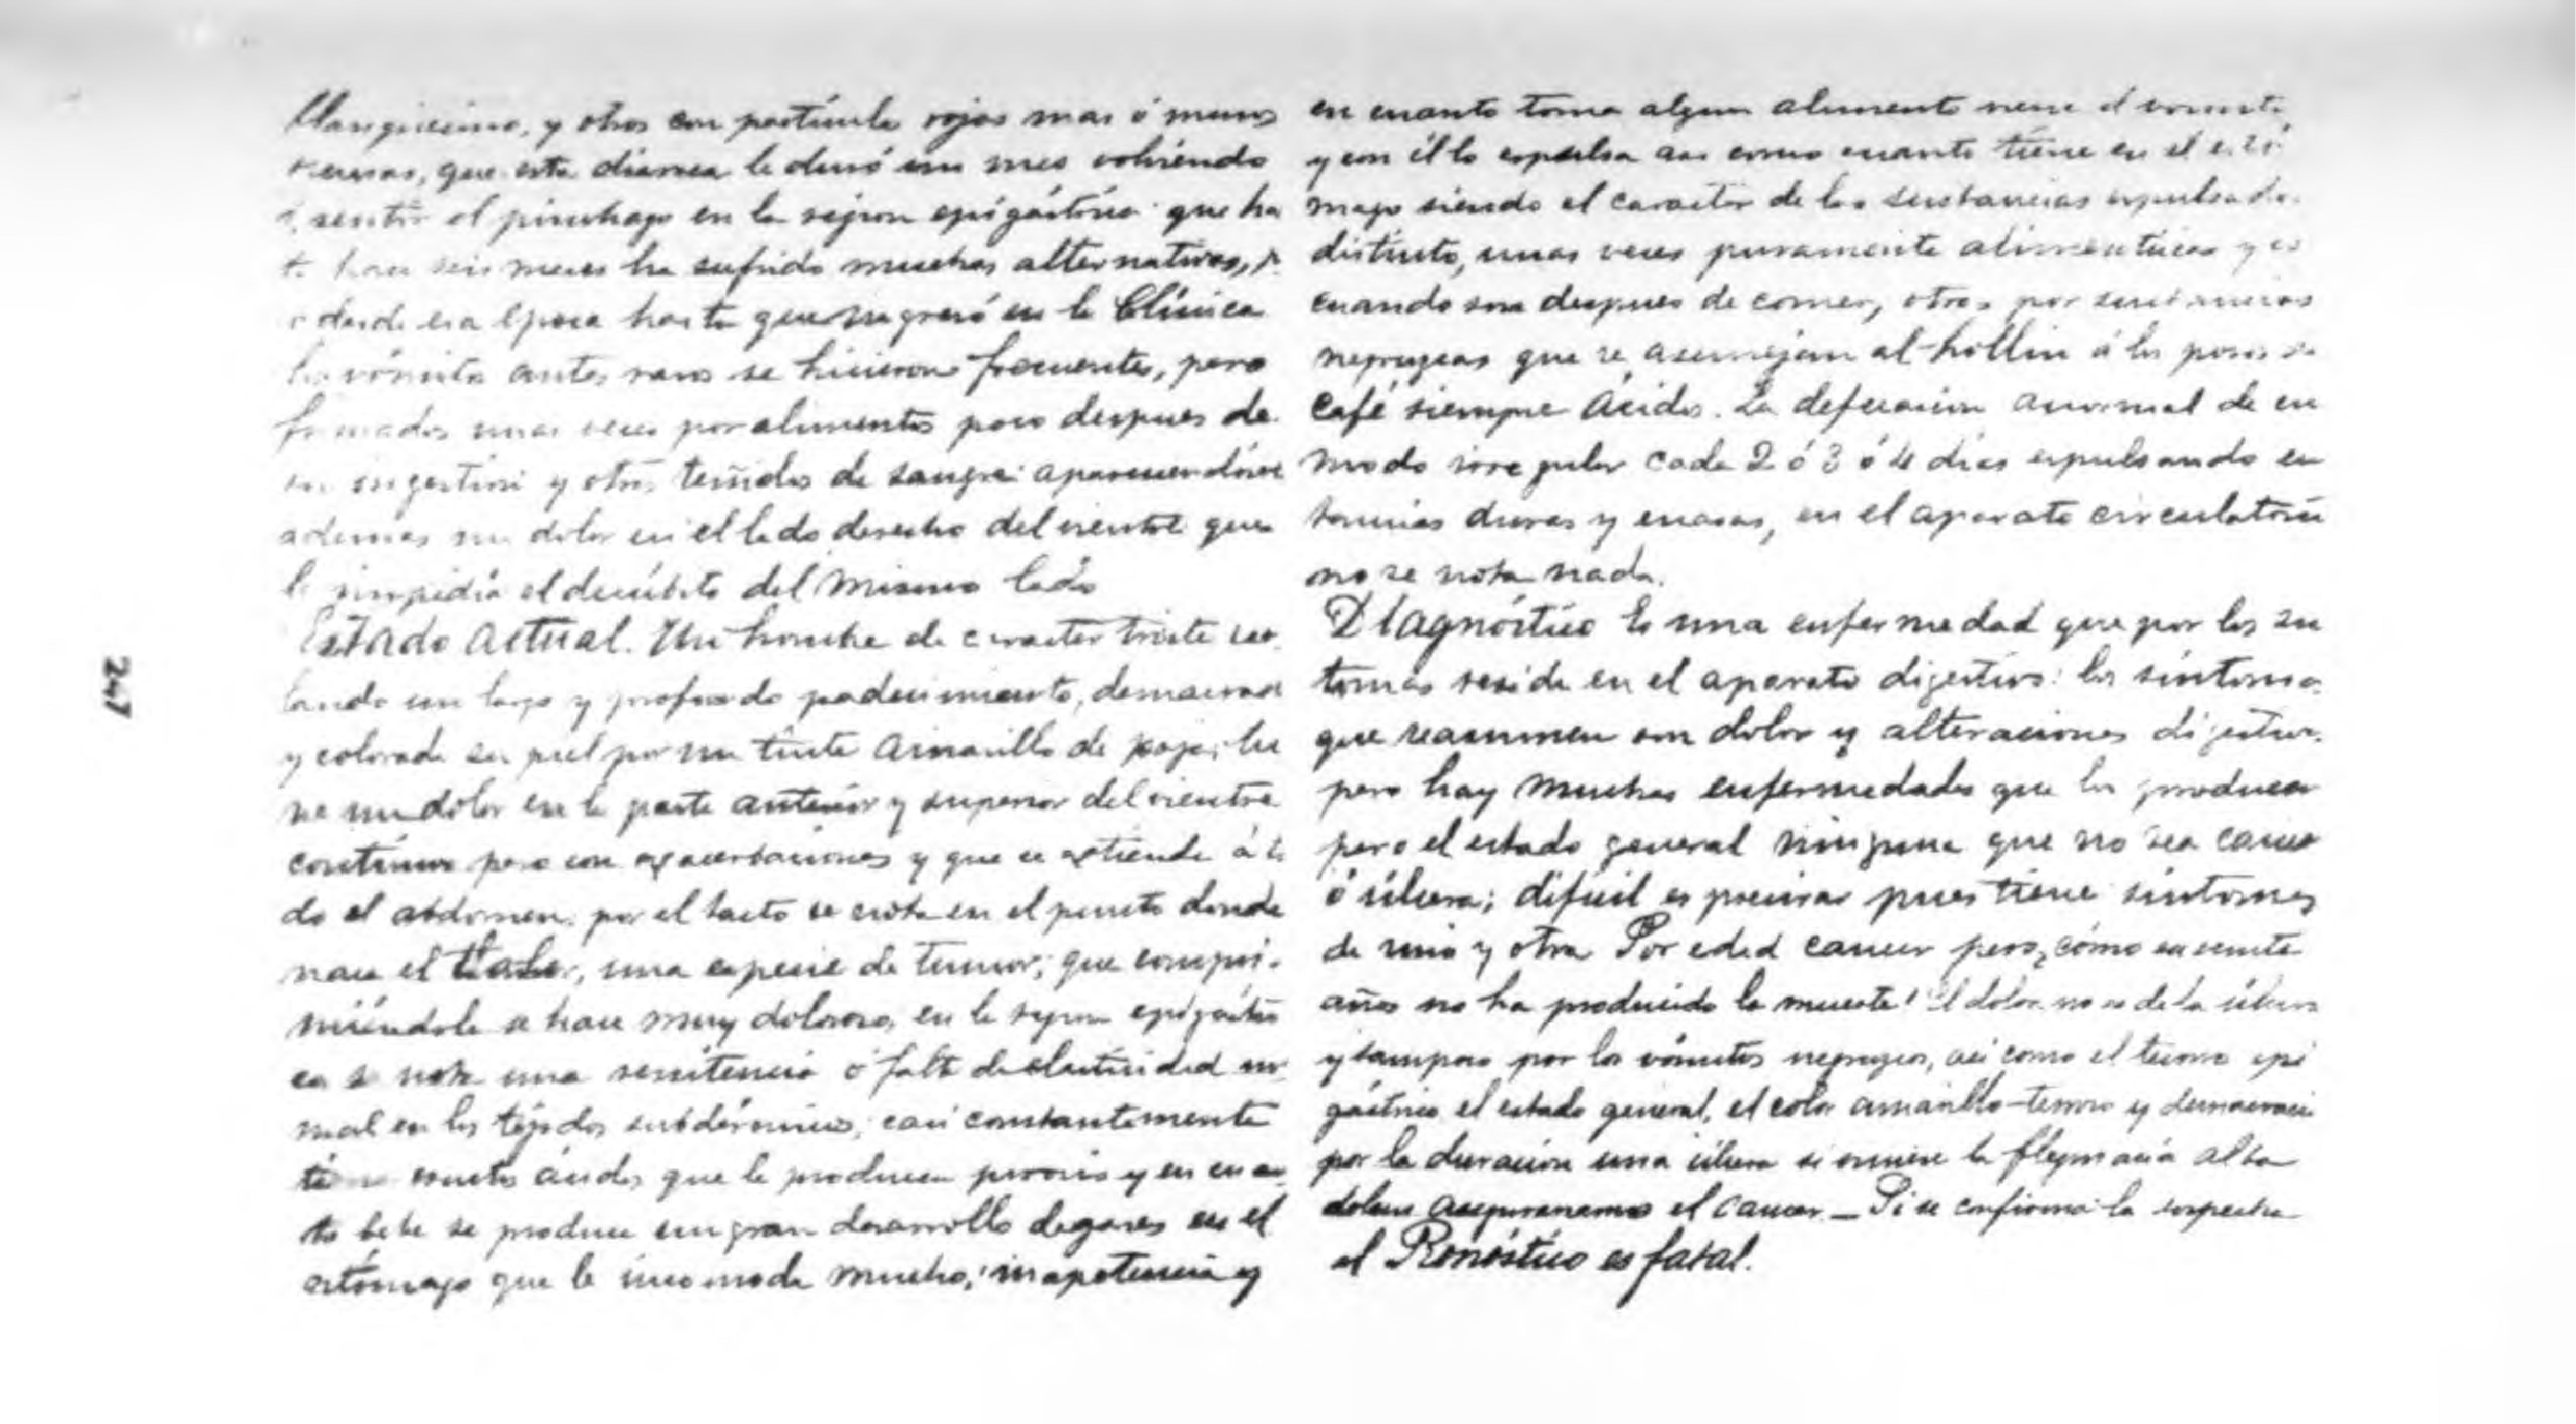 blanquecino, y otros con partículas rojas mas ó menos
que esta diarrea le duró un mes volviendo
á sentir el pinchazo en la region epigástrica que ha
hace seis meses ha sufrido muchas alternativas,
desde esa época hasta que ingresó en la Clínica
los vómitos antes raros se hicieron frecuentes, pero
formados unas veces por alimentos poco despues de
su ingestión y otros teñidos de sangre apareciendose
ademas un dolor en el lado derecho del vientre que
le impedía el decúbito del mismo lado
Estado Actual. Un hombre de caracter triste
un largo y profundo padecimiento, demacrad
y colorada su piel por un tinte amarillo de paja; tie
ne un dolor en la parte anterior y superior del vientre
contínuo pero con exacerbaciones y que se extiende á to
do el abdomen: por el tacto se nota en el punto donde
nace el dolor, una especie de tumor; que compri-
miéndole se hace muy doloroso, en la region epigástri
ca se nota una renitencia ó falta de elasticidad nor
mal en los tejidos subdérmicos; casi constantemente
tiene eructos ácidos que le producen pirosis y en cuan
to bebe se produce un gran desarrollo de gases en el
estómago que le incomoda mucho; inapetencia y
en cuanto toma algun alimento viene el vomito
y con él lo expulsa asi como cuanto tiene en el estó
mago siendo el caracter de las sustancias expulsadas
distinto, unas veces puramente alimenticias y es
cuando son despues de comer, otras por sustancias
negruzcas que se asemejan al hollin ó los posos de
café siempre ácidos. La defecacion anormal de un
modo irregular cada 2 ó 3 ó 4 dias expulsando en
duras y escasas, en el aparato circulatorio
no se nota nada.
Diagnóstico Es una enfermedad que por los sin
tomas reside en el aparato digestivo: los síntomas
que reasumen son dolor y alteraciones digestivas
pero hay muchas enfermedades que los producen
pero el estado general ninguna que no sea cancer
ó úlcera; dificil es precisar pues tiene síntomas
de uno y otra Por edad cancer pero ¿cómo en veinte
años no ha producido la muerte! El dolor no es de la úlcera
y tampoco por los vómitos negruzcos, asi como el tumor epi
gástrico el estado general, el color amarillo-terroso y demacracion
por la duracion una úlcera si tuviere la flegmasia alba
dolens aseguraramos el cancer — Si se confirma la sospecha
el Ronóstico es fatal.
247